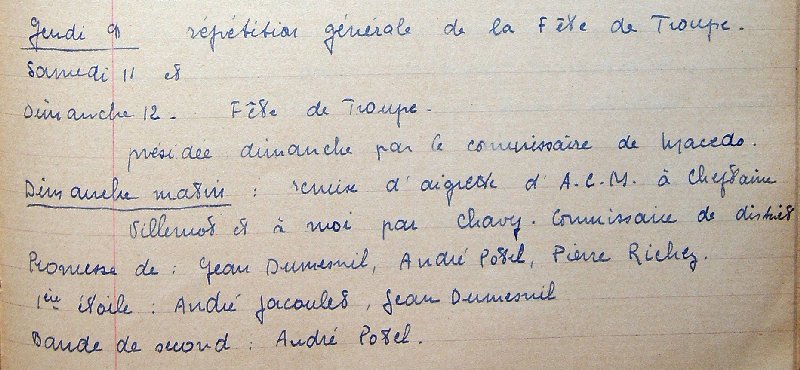 Jeudi 9 répétition générale de la Fête de Troupe.
Samedi 11 et
Dimanche 12. Fête de Troupe.
présidée dimanche par le commissaire de Macedo.
Dimanche matin : remise d'aigrette d'A.C.M. à Cheftaine
Villemot et à moi par Chavy. Commissaire de district
Promesse de : Jean Dumesnil, André Potel, Pierre Richez.
1ère étoile : André Jacoulet, Jean Dumesnil
Bande de second : André Potel.